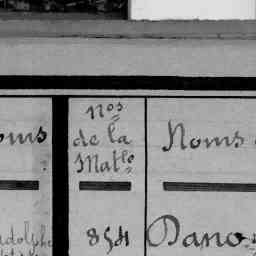 oms
Nos
de la
Matle
Noms
adolphe
854
Dano